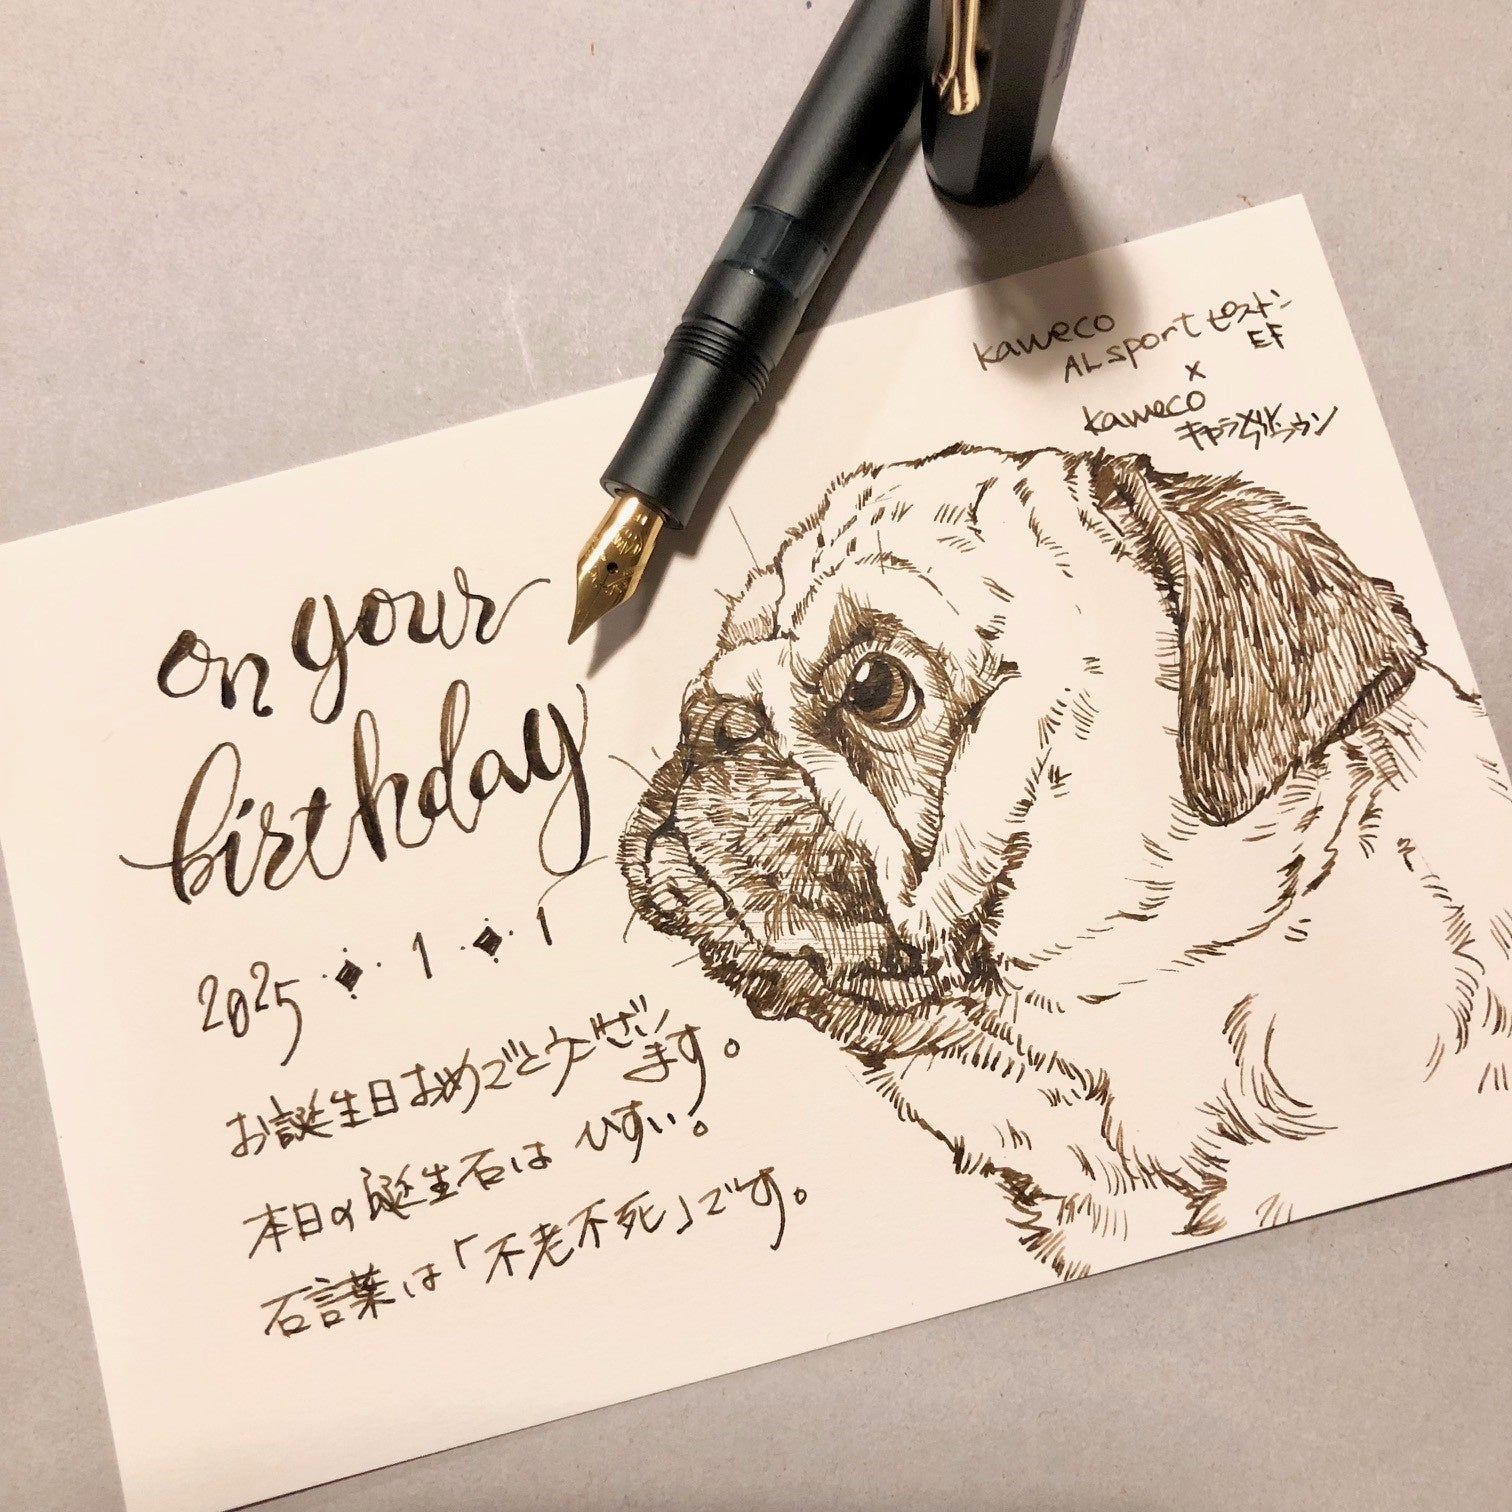 kaweco
AL sport ピストン
EF
×
kaweco
キャラメルブラウン
on your
birthday
2025・◆・1・◆・1
お誕生日おめでとうござい
ます。
本日の誕生石は ひすい。
石言葉は「不老不死」です。